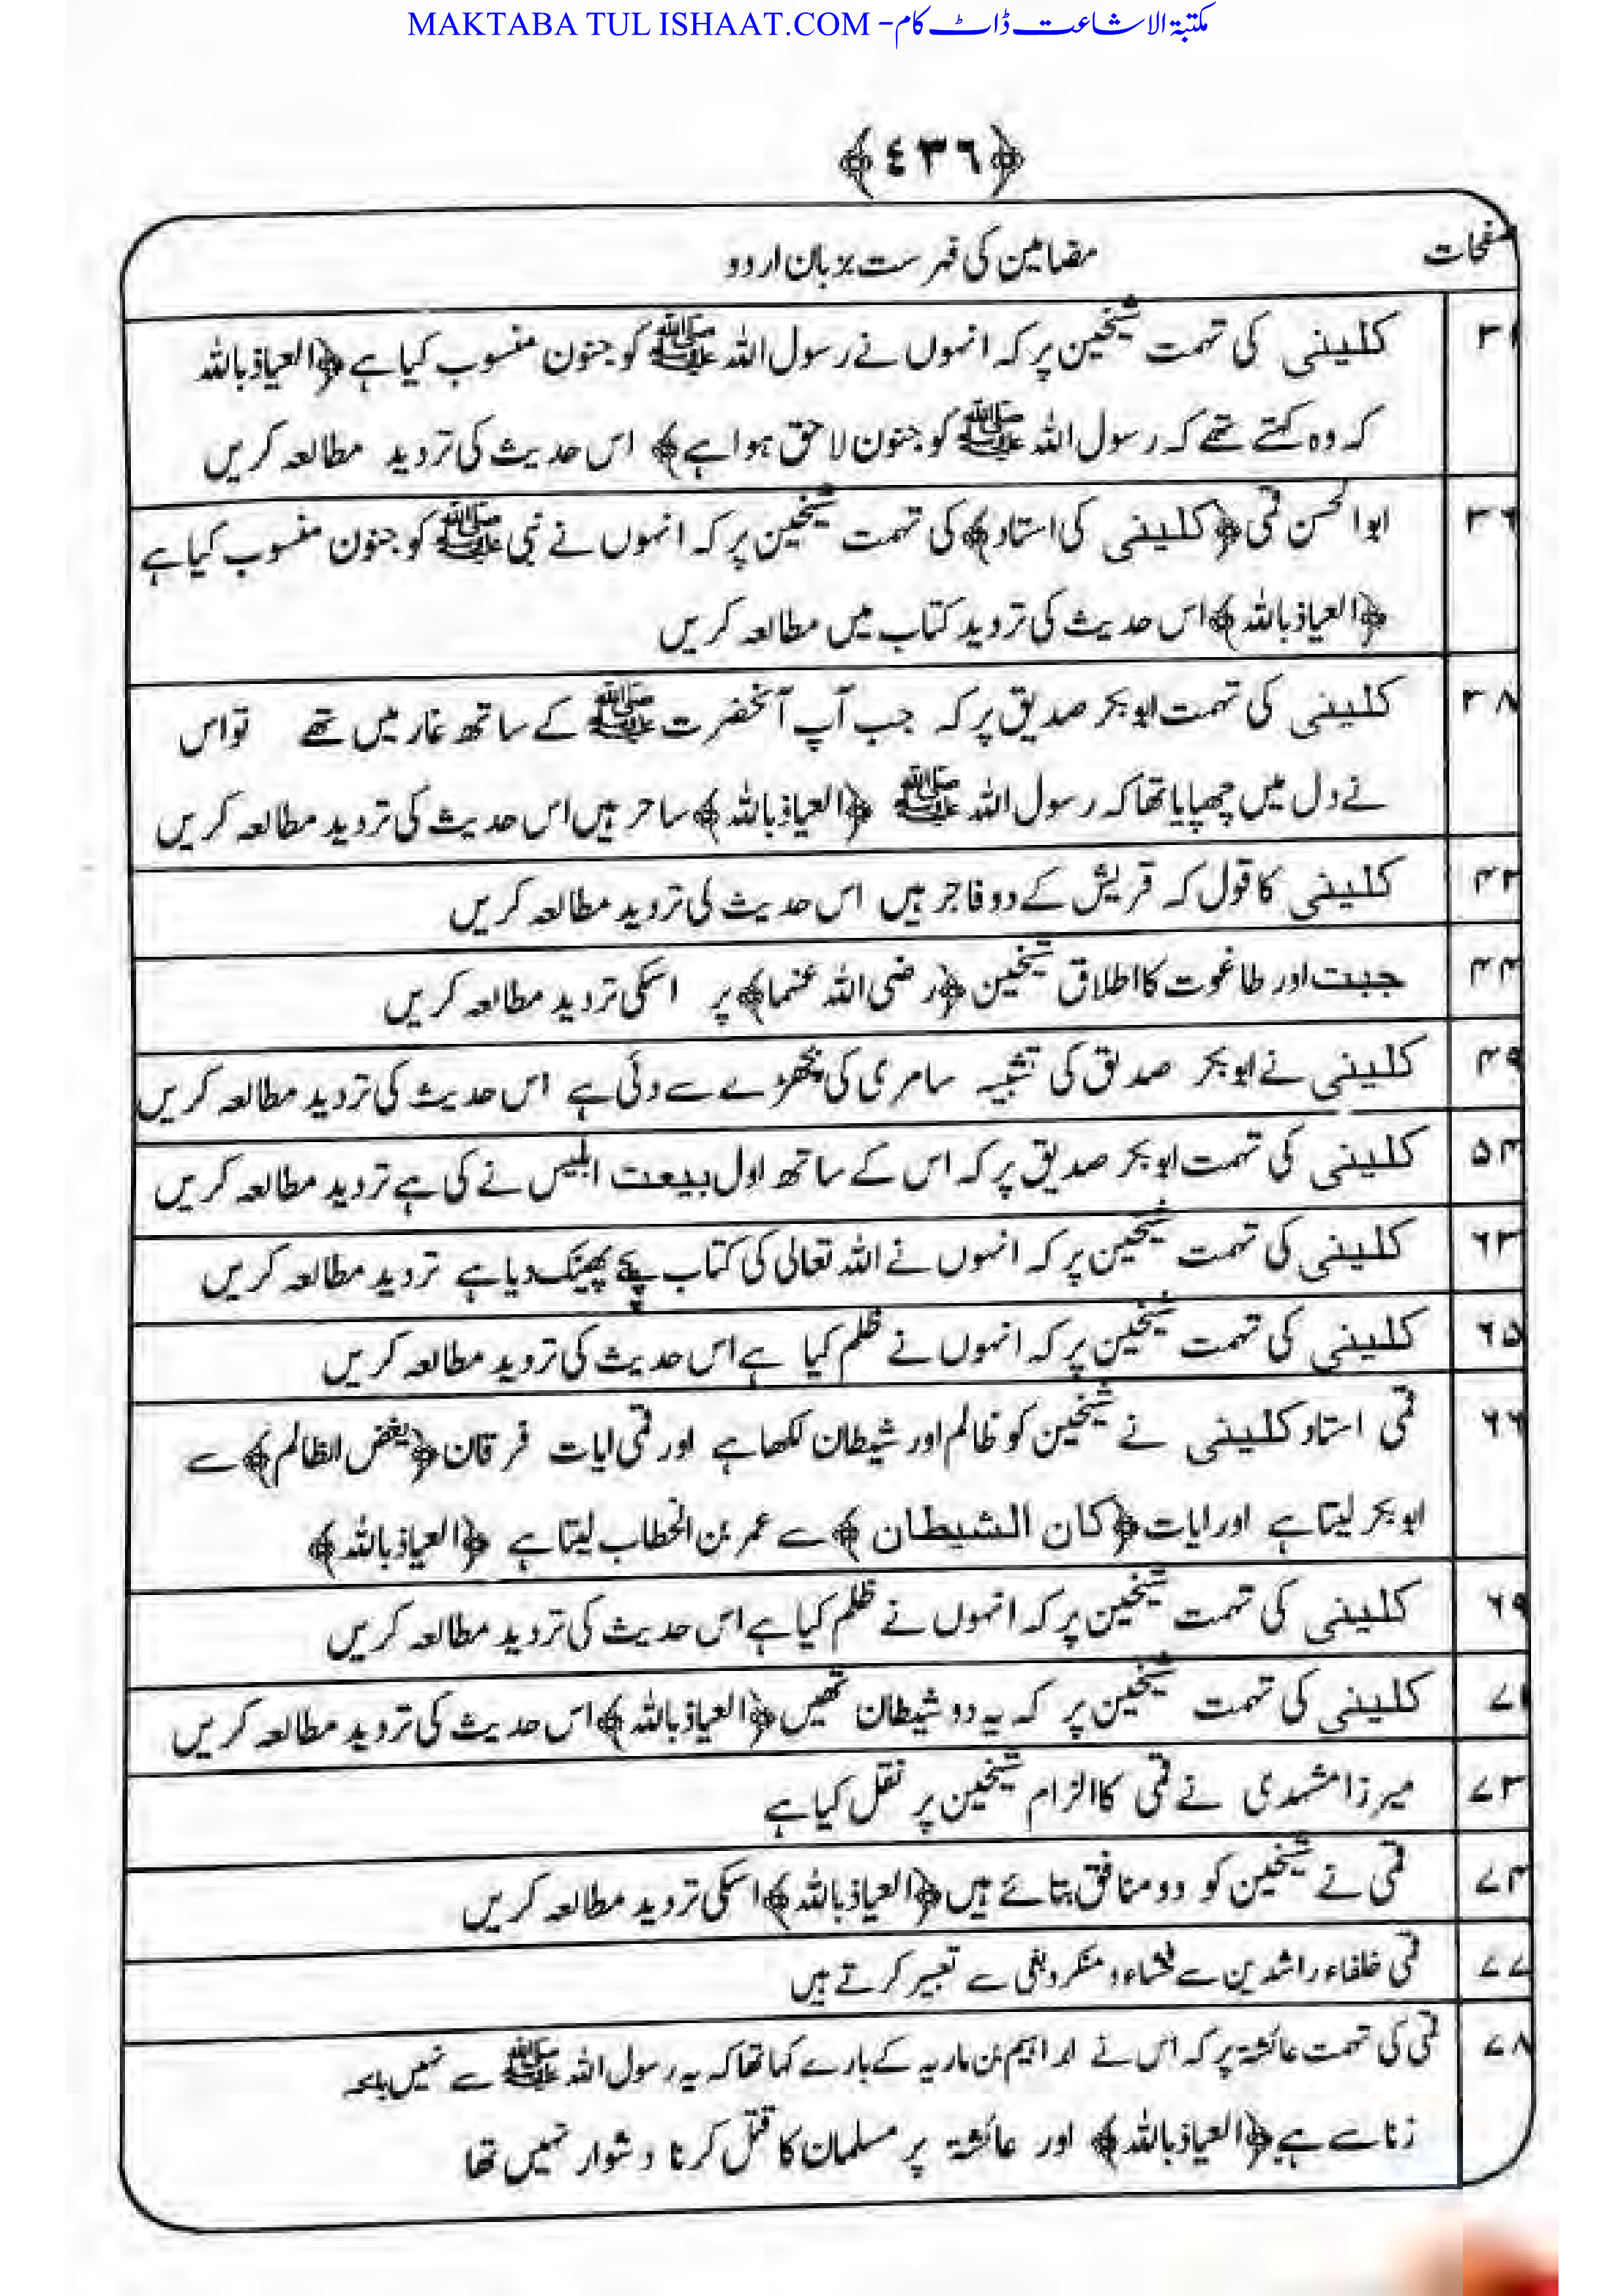 MAKTABA TUL ISHAAT.COM - مکتبۃ الاشاعت ڈاٹ کام
﴿٤٣٦﴾
صفحات مضامین کی فہرست بزبان اردو
۳۱ کلینی کی تہمت شیخین پر کہ انہوں نے رسول اللہ ﷺ کو جنون منسوب کیا ہے ﴿العیاذ باللہ
کہ وہ کہتے تھے کہ رسول اللہ ﷺ کو جنون لاحق ہوا ہے﴾ اس حدیث کی تردید مطالعہ کریں
۳۶ ابو الحسن قمی ﴿کلینی کی استاد﴾ کی تہمت شیخین پر کہ انہوں نے نبی ﷺ کو جنون منسوب کیا ہے
﴿العیاذ باللہ﴾ اس حدیث کی تردید کتاب میں مطالعہ کریں
۳۸ کلینی کی تہمت ابو بکر صدیق پر کہ جب آپ آنحضرت ﷺ کے ساتھ غار میں تھے تو اس
نے دل میں چھپایا تھا کہ رسول اللہ ﷺ ﴿العیاذ باللہ﴾ ساحر ہیں اس حدیث کی تردید مطالعہ کریں
۴۳ کلینی کا قول کہ قریش کے دو فاجر ہیں اس حدیث کی تردید مطالعہ کریں
۴۴ جبت اور طاغوت کا اطلاق شیخین ﴿رضی اللہ عنہما﴾ پر اسکی تردید مطالعہ کریں
۴۹ کلینی نے ابو بکر صدق کی تشبیہ سامری کی بچھڑے سے دئی ہے اس حدیث کی تردید مطالعہ کریں
۵۴ کلینی کی تہمت ابو بکر صدیق پر کہ اس کے ساتھ اول بیعت ابلیس نے کی ہے تردید مطالعہ کریں
۶۳ کلینی کی تہمت شیخین پر کہ انہوں نے اللہ تعالی کی کتاب پیچھے پھینک دیا ہے تردید مطالعہ کریں
۶۵ کلینی کی تہمت شیخین پر کہ انہوں نے ظلم کیا ہے اس حدیث کی تردید مطالعہ کریں
۶۶ قمی استاد کلینی نے شیخین کو ظالم اور شیطان لکھا ہے اور قمی ایات فرقان ﴿یعض الظالم﴾ سے
ابو بکر لیتا ہے اور ایات ﴿کان الشیطان﴾ سے عمر بن الخطاب لیتا ہے ﴿العیاذ باللہ﴾
۶۹ کلینی کی تہمت شیخین پر کہ انہوں نے ظلم کیا ہے اس حدیث کی تردید مطالعہ کریں
۷۱ کلینی کی تہمت شیخین پر کہ یہ دو شیطان تھیں ﴿العیاذ باللہ﴾ اس حدیث کی تردید مطالعہ کریں
۷۳ میرزا مشہدی نے قمی کا الزام شیخین پر نقل کیا ہے
۷۴ قمی نے شیخین کو دو منافق بتائے ہیں ﴿العیاذ باللہ﴾ اسکی تردید مطالعہ کریں
۷۷ قمی خلفاء راشدین سے فحشاء و منکر و بغی سے تعبیر کرتے ہیں
۷۸ قمی کی تہمت عائشۃ پر کہ اس نے ابراہیم بن ماریہ کے بارے کہا تھا کہ یہ رسول اللہ ﷺ سے نہیں بلحہ
زنا سے ہے ﴿العیاذ باللہ﴾ اور عائشۃ پر مسلمان کا قتل کرنا دشوار نہیں تھا